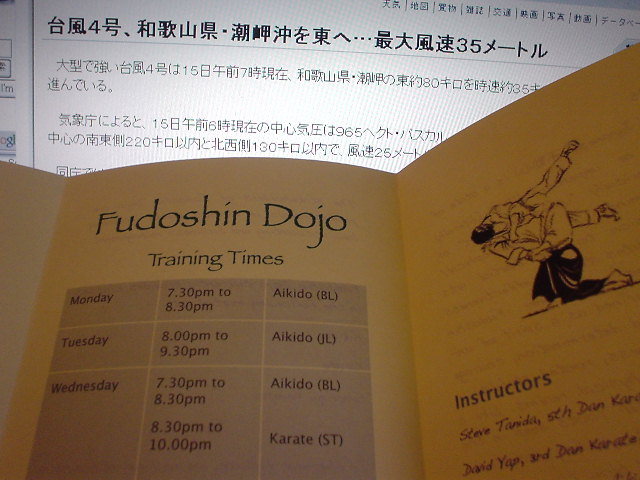 天気 | 地図 | 買物 | 雑誌 | 交通 | 映画 | 写真 | 動画 | データベー
台風4号、和歌山県・潮岬沖を東へ…最大風速35メートル
大型で強い台風4号は15日午前7時現在、和歌山県・潮岬の東約80キロを時速約35キ
進んでいる。
気象庁によると、15日午前6時現在の中心気圧は965ヘクト・パスカル
中心の南東側220キロ以内と北西側130キロ以内で、風速25メート
同庁で
Fudoshin Dojo
Training Times
Monday 7.30pm to 8.30pm Aikido (BL)
Tuesday 8.00pm to 9.30pm Aikido (JL)
Wednesday 7.30pm to 8.30pm Aikido (BL)
8.30pm to 10.00pm Karate (ST)
Instructors
Steve Tanida, 5th Dan Kara
David Yap, 3rd Dan Karate